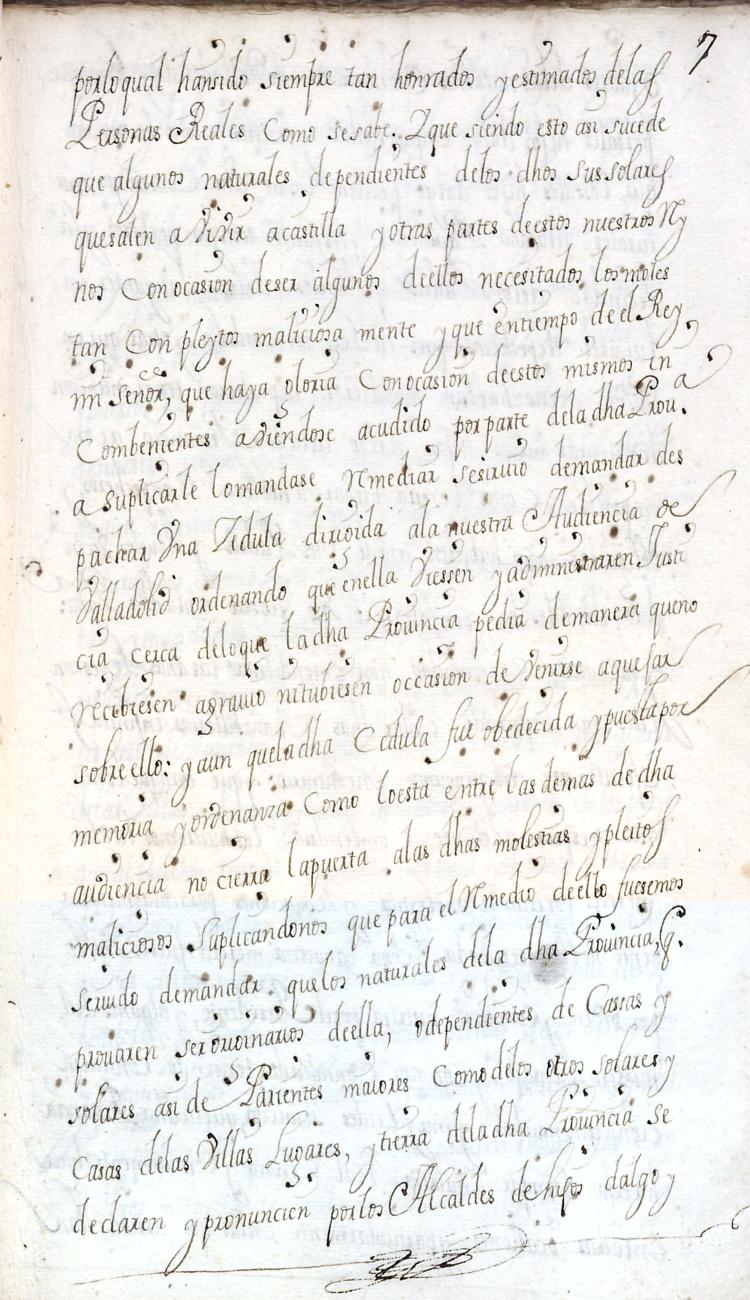 7
porloqual hansido siempre tan honrados yestimados delas
Personas Reales Como sesabe. Yque siendo esto asi sucede
que algunos naturales dependientes delos dhos sus solares
quesalen a Vivir acastilla yotras partes deestos nuestros Ry
nos Con ocasion deser algunos deellos necesitados, los moles
tan Con pleytos maliciosa mente yque entiempo de el Rey
mi Señor, que haya gloria Con ocasion deestos mismos in
Combenientes aviendose acudido por parte dela dha Prou.a
a suplicarle lo mandase Rmediar sesiruio demandar des
pachar Vna Zedula dirigida ala nuestra Audiencia de
Valladolid ordenando que enella Viessen yadministraren Justi
cia cerca deloque la dha Prouincia pedia demanera queno
recibiesen agrauio nitubiesen occasion de Venirse aquejar
sobre ello: yaun quela dha Cedula fue obedecida ypuesta por
memoria yordenanza Como loesta entre las demas de dha
audiencia no cierra lapuerta alas dhas molestias ypleitos
maliciosos Suplicandonos que para el Rmedio deello fuesemos
seruido demandar quelos naturales dela dha Prouincia, q.
prouaren ser originarios deella, odependientes de Cassas y
solares asi de Parientes maiores Como delos otros solares y
Casas delas Villas Lugares, ytierra dela dha Prouincia se
declaren ypronuncien por los Alcaldes de hijos dalgo y